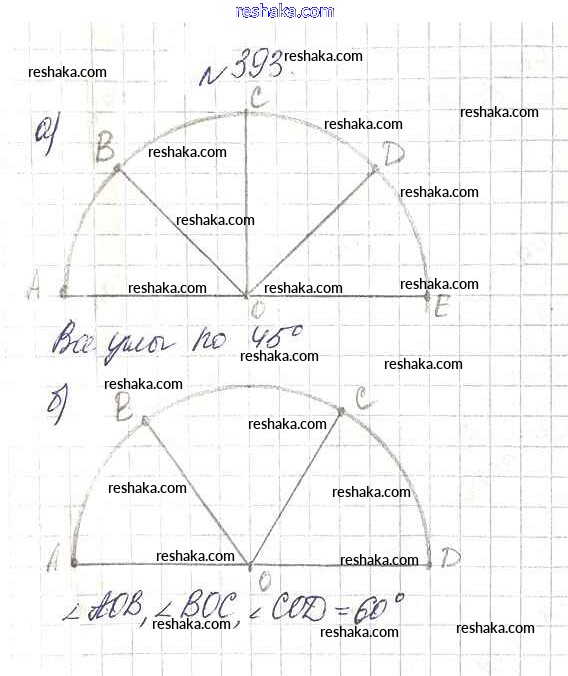 reshaka.com
№393.
reshaka.com
reshaka.com
C
reshaka.com
а)
reshaka.com
B
reshaka.com
D
reshaka.com
reshaka.com
A
reshaka.com
reshaka.com
reshaka.com
O
E
Все углы по 45°
reshaka.com
reshaka.com
reshaka.com
б)
B
C
reshaka.com
reshaka.com
reshaka.com
A
reshaka.com
reshaka.com
O
D
∠AOB, ∠BOC, ∠COD = 60°
reshaka.com
reshaka.com
reshaka.com